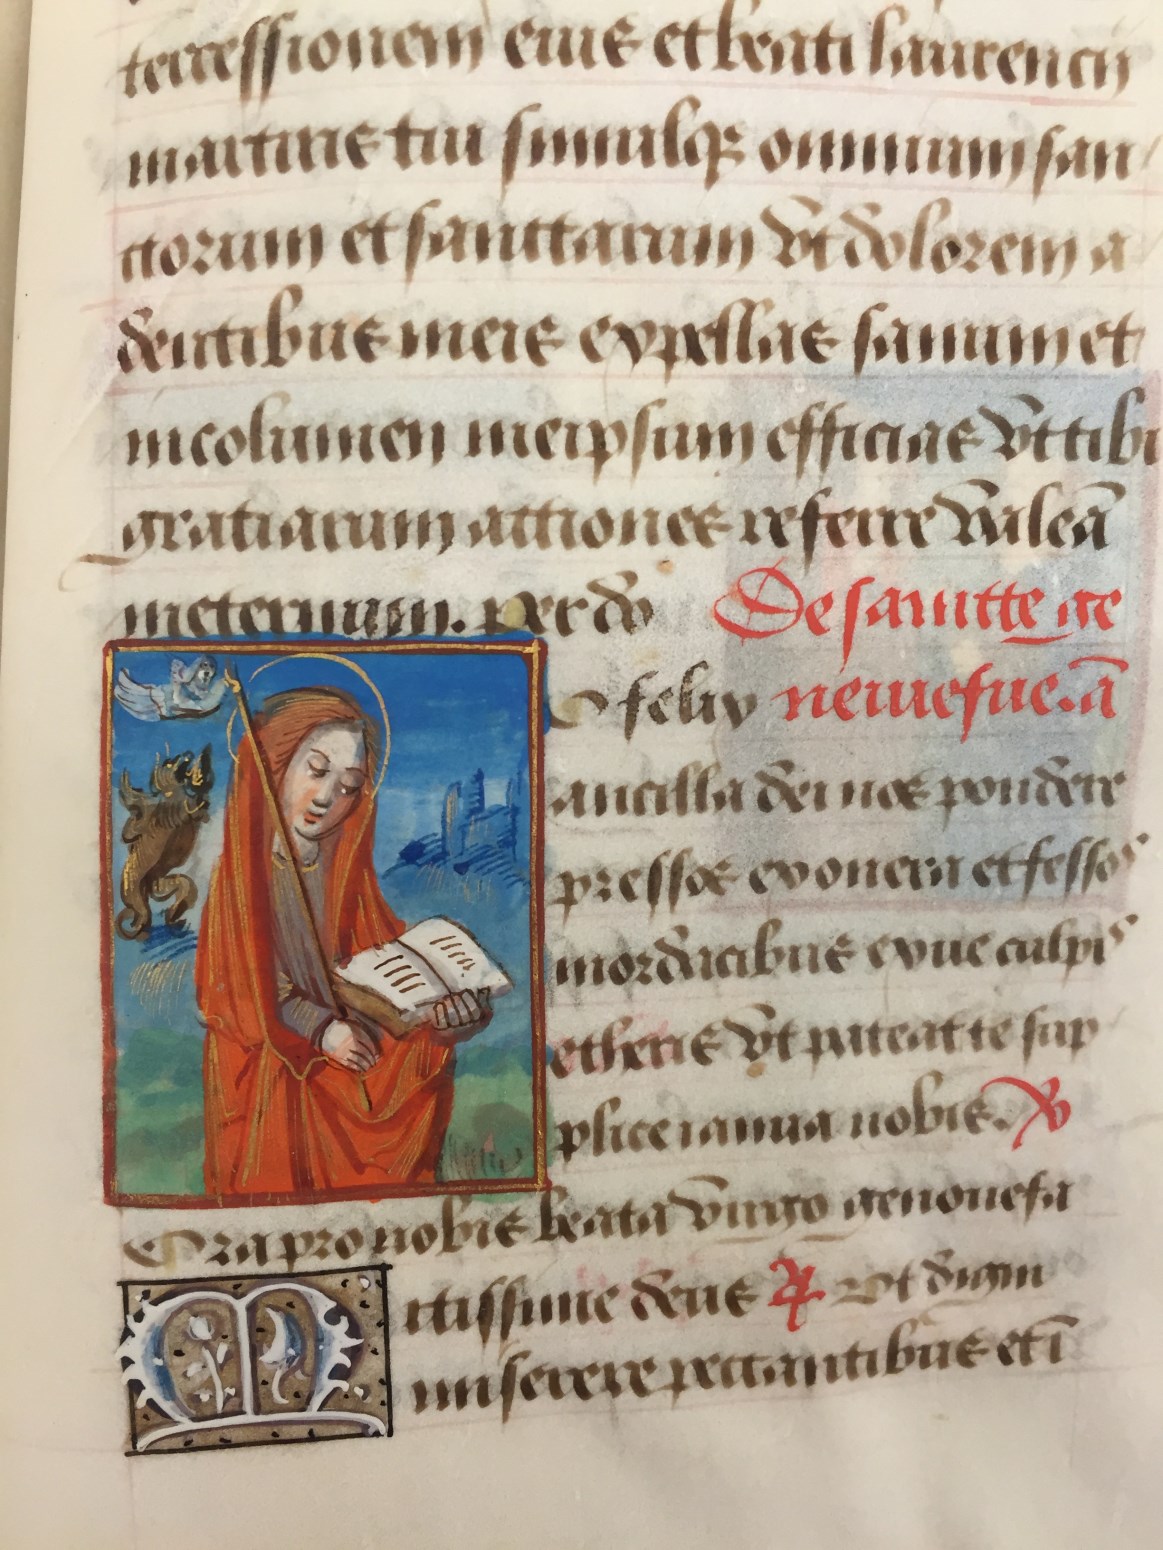 tercessionem eius et beati laurencii
martiris tui simulq; omnium san
ctorum et sanctarum vt dolorem a
dentibus meis expellas sanum et
incolumen meipsum efficias vt tibi
gratiarum actiones referre valeā
ineternum. per do De sancte ge
O felix neuiefue. ā
ancilla dei nos pondere
pressos exonera et fessos
mordacibus exue culpis
etheris vt pateat te sup
plice ianua nobis. V
Ora pro nobis beata virgo genouefa
Mitissime deus R Vt digni
miserere peccantibus et i